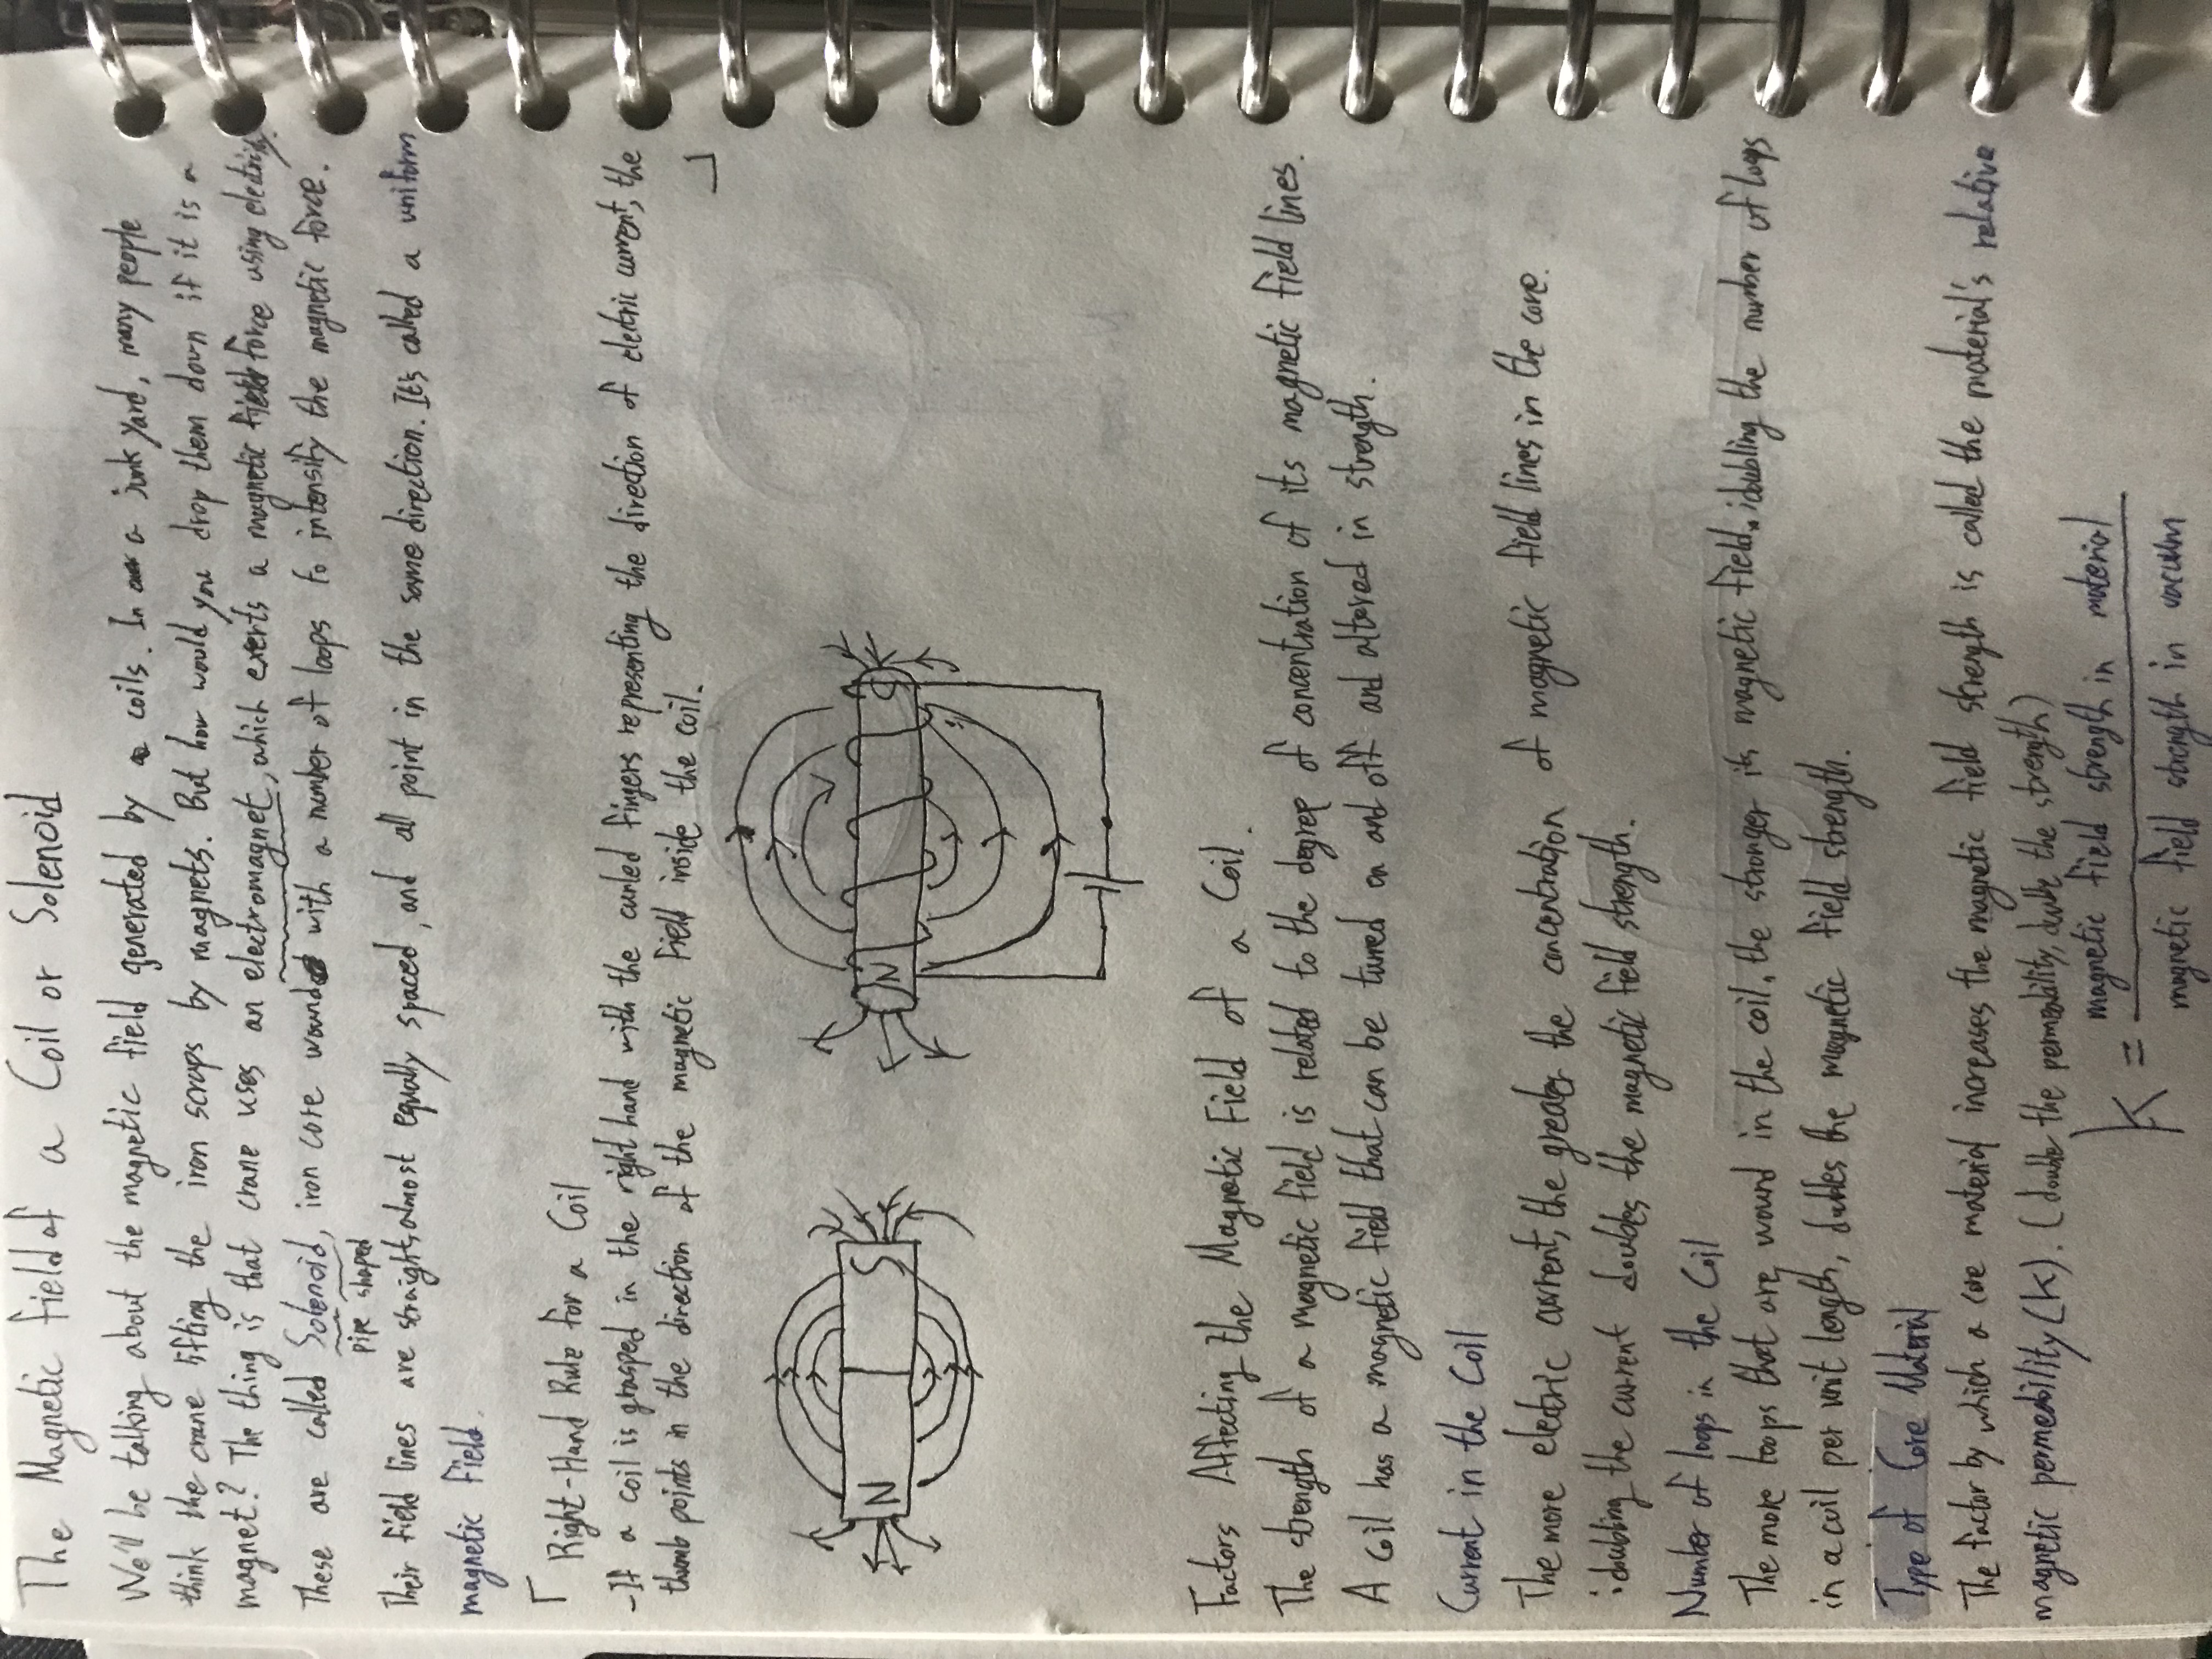 The Magnetic Field of a Coil or Solenoid
We'll be talking about the magnetic field generated by a coils. In a junk yard, many people
think the crane lifting the iron scraps by magnets. But how would you drop them down if it is a
magnet? The thing is that crane uses an electromagnet, which exerts a magnetic force using electricity.
These are called Solenoid, iron core wound with a number of loops to intensify the magnetic force.
pipe shaped
Their field lines are straight, almost equally spaced, and all point in the same direction. It's called a uniform
magnetic field.
Right-Hand Rule for a Coil
-If a coil is grasped in the right hand with the curled fingers representing the direction of electric current, the
thumb points in the direction of the magnetic field inside the coil.
N S
N S
Factors Affecting the Magnetic Field of a Coil.
The strength of a magnetic field is related to the degree of concentration of its magnetic field lines.
A Coil has a magnetic field that can be turned on and off and altered in strength.
Current in the Coil
The more electric current, the greater the concentration of magnetic field lines in the core.
: doubling the current doubles the magnetic field strength.
Number of loops in the Coil
The more loops that are wound in the coil, the stronger its magnetic field. : doubling the number of loops
in a coil per unit length, doubles the magnetic field strength.
Type of Core Material
The factor by which a core material increases the magnetic field strength is called the material's relative
magnetic permeability (K). (double the permeability, double the strength)
K = magnetic field strength in material
magnetic field strength in vacuum